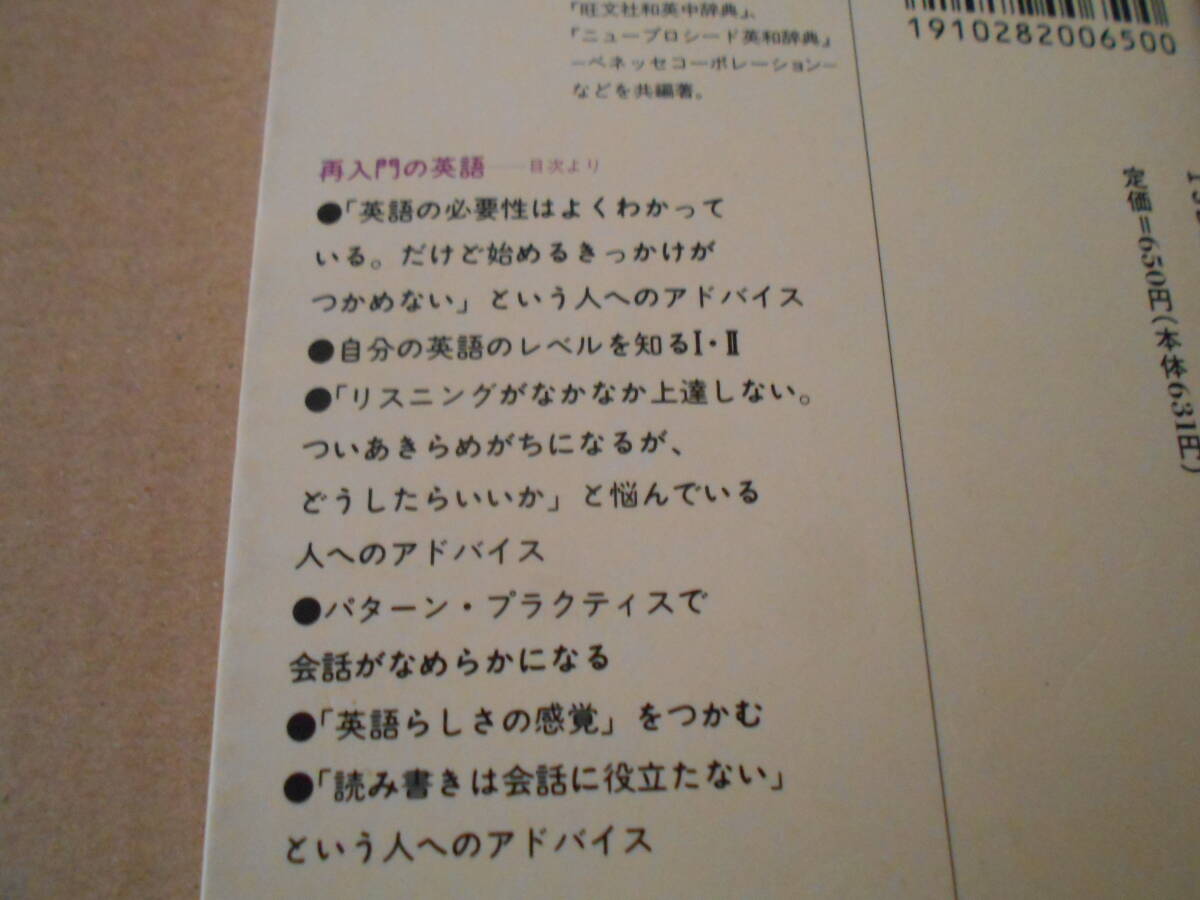 「旺文社和英中辞典」、
「ニュープロシード英和辞典」
−ベネッセコーポレーション−
などを共編著。
再入門の英語――目次より
●「英語の必要性はよくわかって
いる。だけど始めるきっかけが
つかめない」という人へのアドバイス
●自分の英語のレベルを知るⅠ・Ⅱ
●「リスニングがなかなか上達しない。
ついあきらめがちになるが、
どうしたらいいか」と悩んでいる
人へのアドバイス
●パターン・プラクティスで
会話がなめらかになる
●「英語らしさの感覚」をつかむ
●「読み書きは会話に役立たない」
という人へのアドバイス
1910282006500
定価=650円(本体631円)